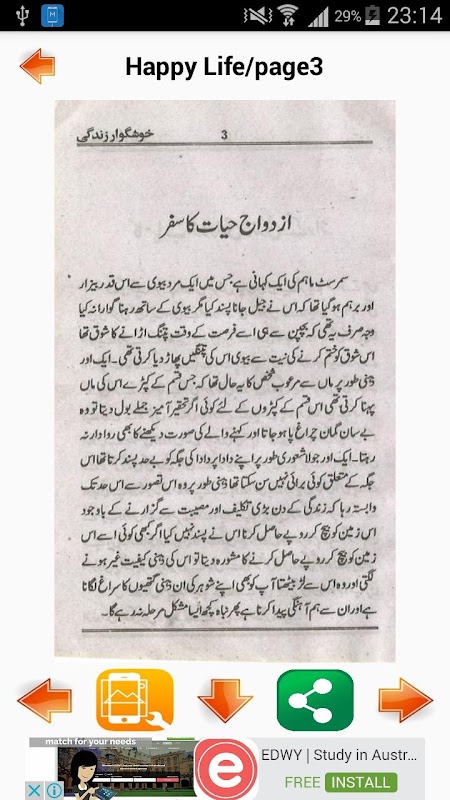 29% 23:14
Happy Life/page3
خوشگوار زندگی 3
ازدواج حیات کا سفر
سمرسٹ ماہم کی ایک کہانی ہے جس میں ایک مرد بیوی سے اس قدر بیزار
اور برہم ہو گیا تھا کہ اس نے جیل جانا پسند کیا مگر بیوی کے ساتھ رہنا گوارا نہ کیا
وجہ صرف یہ تھی کہ بچپن سے ہی اسے فرصت کے وقت پتنگ اڑانے کا شوق تھا
اس شوق کو ختم کرنے کی نیت سے بیوی اس کی پتنگیں پھاڑ دیا کرتی تھی۔ ایک اور
ذہنی طور پر ماں سے مرعوب شخص کا یہ حال تھا کہ جس قسم کے کپڑے اس کی ماں
پہنا کرتی تھی اس قسم کے کپڑوں کے لئے کوئی اگر تحقیر آمیز جملے بول دیتا تو وہ
بے سان گمان چراغ پا ہو جاتا اور کہنے والے کی صورت دیکھنے کا بھی روادار نہ
رہتا۔ ایک اور جو لاشعوری طور پر اپنے دادا پر دادا کی جگہ کو بے حد پسند کرتا تھا اس
جگہ کے متعلق کوئی برائی نہیں سن سکتا تھا ذہنی طور پر وہ اس تصور سے اس حد تک
وابستہ رہا کہ زندگی کے دن بڑی تکلیف اور مصیبت سے گزارنے کے باوجود
اس زمین کو بیچ کر روپے حاصل کرنا اس نے پسند نہیں کیا اگر بھی کوئی اسے اس
زمین کو بیچ کر روپے حاصل کرنے کا مشورہ دیتا تو اس کی ذہنی کیفیت غیر ہونے
لگتی اور وہ اس سے لڑ بیٹھتا آپ کو بھی اپنے شوہر کی ان ذہنی گتھیوں کا سراغ لگانا
ہے اور ان سے ہم آہنگی پیدا کرنا ہے پھر نباہ کچھ ایسا مشکل مرحلہ نہ رہے گا۔
match for your needs
e
EDWY | Study in Austr...
FREE INSTALL